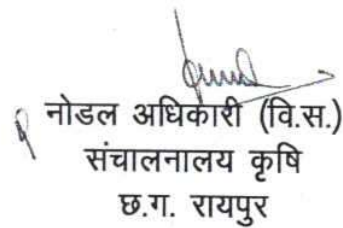 नोडल अधिकारी (वि.स.)
संचालनालय कृषि
छ.ग. रायपुर